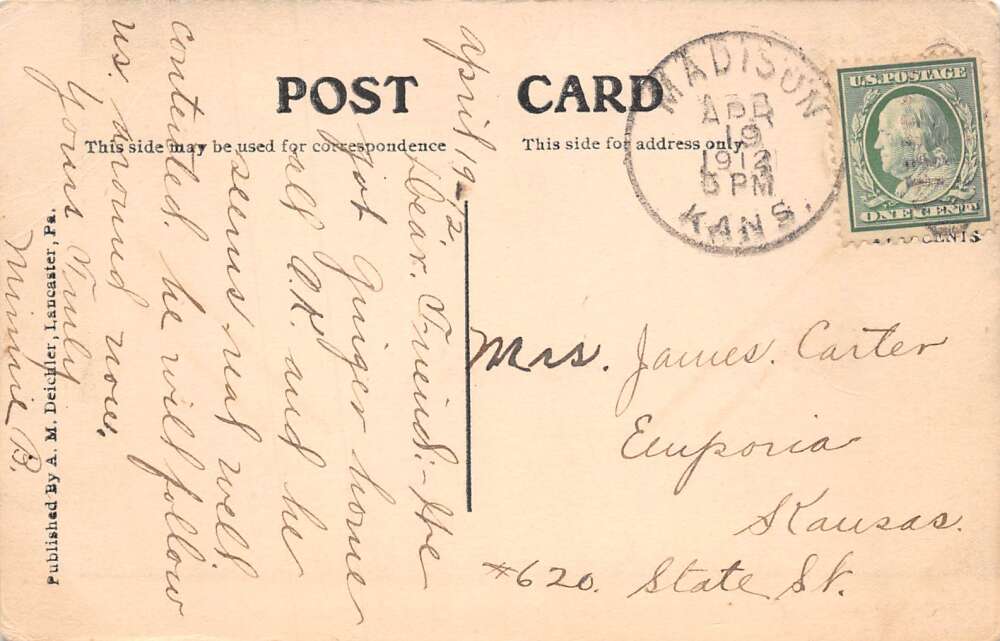 POST CARD
This side may be used for correspondence
This side for address only
MADISON
APR
19
1912
6 PM
KANS.
U.S. POSTAGE
ONE CENT
CENTS
April 19-
2.
Dear. Friend:- We
got Ginger home
all O.K. and he
seems real well
contented. he will follow
us. around now.
Yours Truly
Minnie B.
Mrs. James. Carter
Emporia
Kansas.
#620. State St.
Published By A. M. Deichler, Lancaster, Pa.